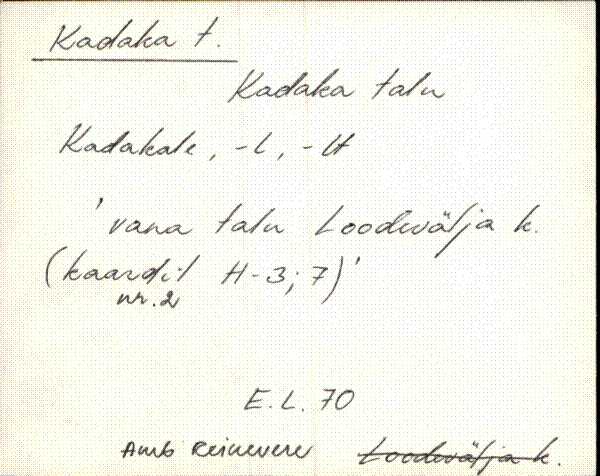 Kadaka t.
Kadaka talu
Kadakale, -l, -lt
'vana talu Loodevälja k.
(kaardil H-3; 7)'
nr. 2
E.L. 70
Amb Reinevere Loodevälja k.